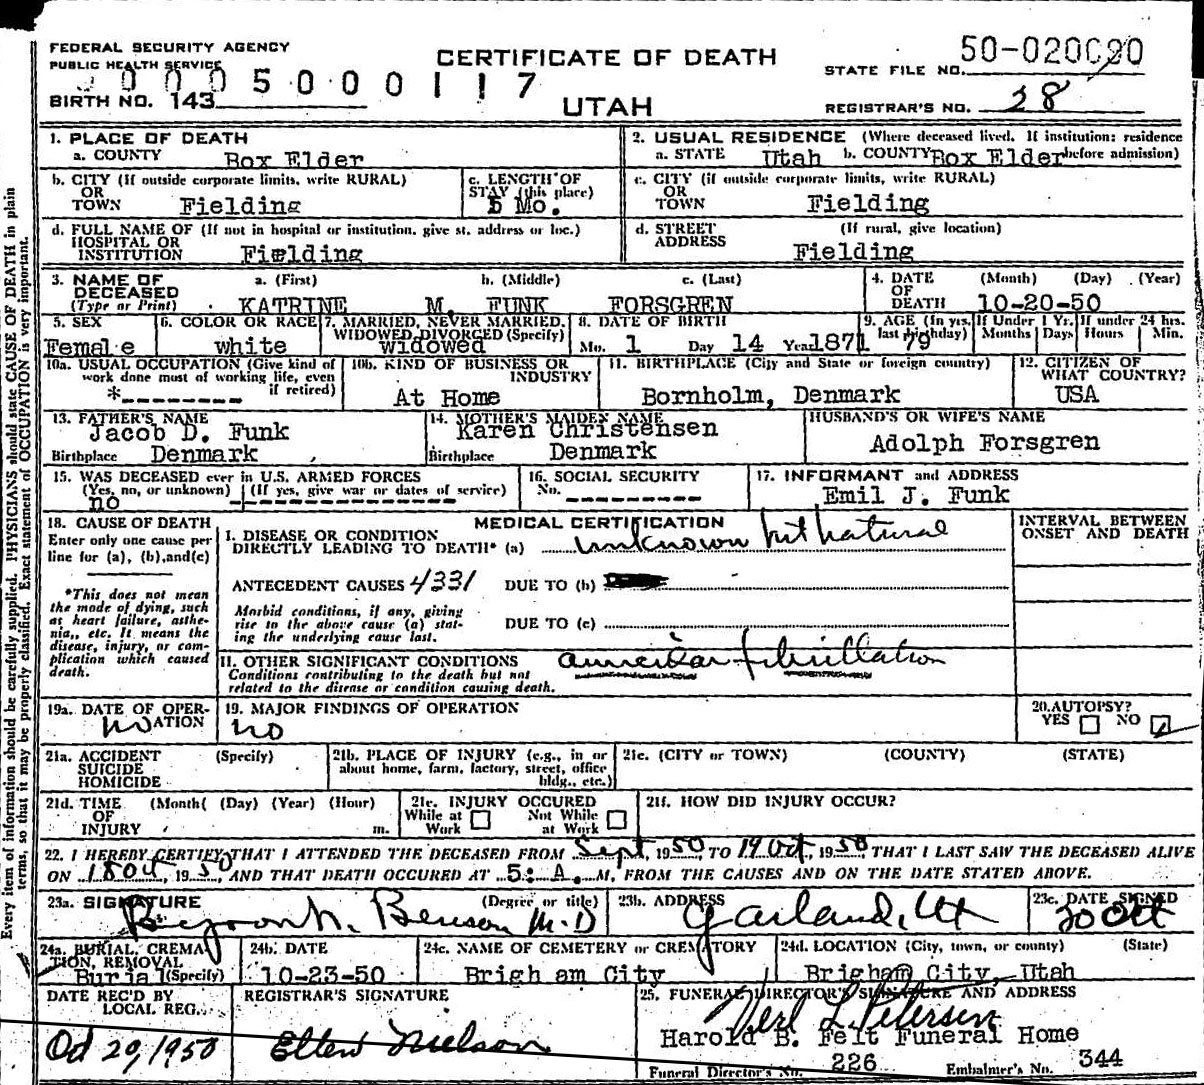 FEDERAL SECURITY AGENCY
PUBLIC HEALTH SERVICE
CERTIFICATE OF DEATH
50-020020
STATE FILE NO.
0005000117
BIRTH NO. 143
UTAH
REGISTRAR'S NO. 28
1. PLACE OF DEATH
a. COUNTY Box Elder
2. USUAL RESIDENCE (Where deceased lived. If institution: residence before admission)
a. STATE Utah b. COUNTY Box Elder
b. CITY (If outside corporate limits, write RURAL)
OR
TOWN Fielding
c. LENGTH OF
STAY (this place)
5 Mo.
c. CITY (if outside corporate limits, write RURAL)
OR
TOWN Fielding
d. FULL NAME OF (If not in hospital or institution, give st. address or loc.)
HOSPITAL OR
INSTITUTION Fielding
d. STREET (If rural, give location)
ADDRESS Fielding
3. NAME OF a. (First) b. (Middle) c. (Last)
DECEASED
(Type or Print) KATRINE M. FUNK FORSGREN
4. DATE (Month) (Day) (Year)
OF
DEATH 10-20-50
5. SEX
Female
6. COLOR OR RACE
white
7. MARRIED, NEVER MARRIED,
WIDOWED, DIVORCED (Specify)
widowed
8. DATE OF BIRTH
Mo. 1 Day 14 Year 1871
9. AGE (In yrs. last birthday) 79
If Under 1 Yr. Months Days
If under 24 hrs. Hours Min.
10a. USUAL OCCUPATION (Give kind of
work done most of working life, even
if retired)
*--------
10b. KIND OF BUSINESS OR
INDUSTRY
At Home
11. BIRTHPLACE (City and State or foreign country)
Bornholm, Denmark
12. CITIZEN OF
WHAT COUNTRY?
USA
13. FATHER'S NAME
Jacob D. Funk
Birthplace Denmark
14. MOTHER'S MAIDEN NAME
Karen Christensen
Birthplace Denmark
HUSBAND'S OR WIFE'S NAME
Adolph Forsgren
15. WAS DECEASED ever in U.S. ARMED FORCES
(Yes, no, or unknown) (If yes, give war or dates of service)
no --------------
16. SOCIAL SECURITY
No. ---------
17. INFORMANT and ADDRESS
Emil J. Funk
18. CAUSE OF DEATH
Enter only one cause per
line for (a), (b), and (c)
*This does not mean
the mode of dying, such
as heart failure, asthe-
nia,, etc. It means the
disease, injury, or com-
plication which caused
death.
MEDICAL CERTIFICATION
I. DISEASE OR CONDITION
DIRECTLY LEADING TO DEATH* (a) unknown but natural
ANTECEDENT CAUSES 4331 DUE TO (b)
Morbid conditions, if any, giving
rise to the above cause (a) stat-
ing the underlying cause last.
DUE TO (c)
II. OTHER SIGNIFICANT CONDITIONS
Conditions contributing to the death but not
related to the disease or condition causing death.
fibrillation
INTERVAL BETWEEN
ONSET AND DEATH
19a. DATE OF OPER-
ATION no
19. MAJOR FINDINGS OF OPERATION
no
20. AUTOPSY?
YES NO
21a. ACCIDENT (Specify)
SUICIDE
HOMICIDE
21b. PLACE OF INJURY (e.g., in or
about home, farm, factory, street, office
bldg., etc.)
21c. (CITY or TOWN) (COUNTY) (STATE)
21d. TIME (Month( (Day) (Year) (Hour)
OF
INJURY m.
21e. INJURY OCCURED
While at Work Not While at Work
21f. HOW DID INJURY OCCUR?
22. I HEREBY CERTIFY THAT I ATTENDED THE DECEASED FROM Sept, 1950, TO 19 Oct, 1950, THAT I LAST SAW THE DECEASED ALIVE
ON 18 Oct, 1950 AND THAT DEATH OCCURED AT 5: A. M, FROM THE CAUSES AND ON THE DATE STATED ABOVE.
23a. SIGNATURE (Degree or title)
Benson M.D
23b. ADDRESS
Garland, Ut
23c. DATE SIGNED
20 Oct
24a. BURIAL, CREMA-
TION, REMOVAL
Burial (Specify)
24b. DATE
10-23-50
24c. NAME OF CEMETERY or CREMATORY
Brigham City
24d. LOCATION (City, town, or county) (State)
Brigham City, Utah
DATE REC'D BY
LOCAL REG.
Oct 29, 1950
REGISTRAR'S SIGNATURE
Ellen Nielson
25. FUNERAL DIRECTOR'S SIGNATURE AND ADDRESS
Verl L. Petersen
Harold B. Felt Funeral Home
Funeral Director's No. 226 Embalmer's No. 344
Every item of information should be carefully supplied. PHYSICIANS should state CAUSE OF DEATH in plain
terms, so that it may be properly classified. Exact statement of OCCUPATION is very important.